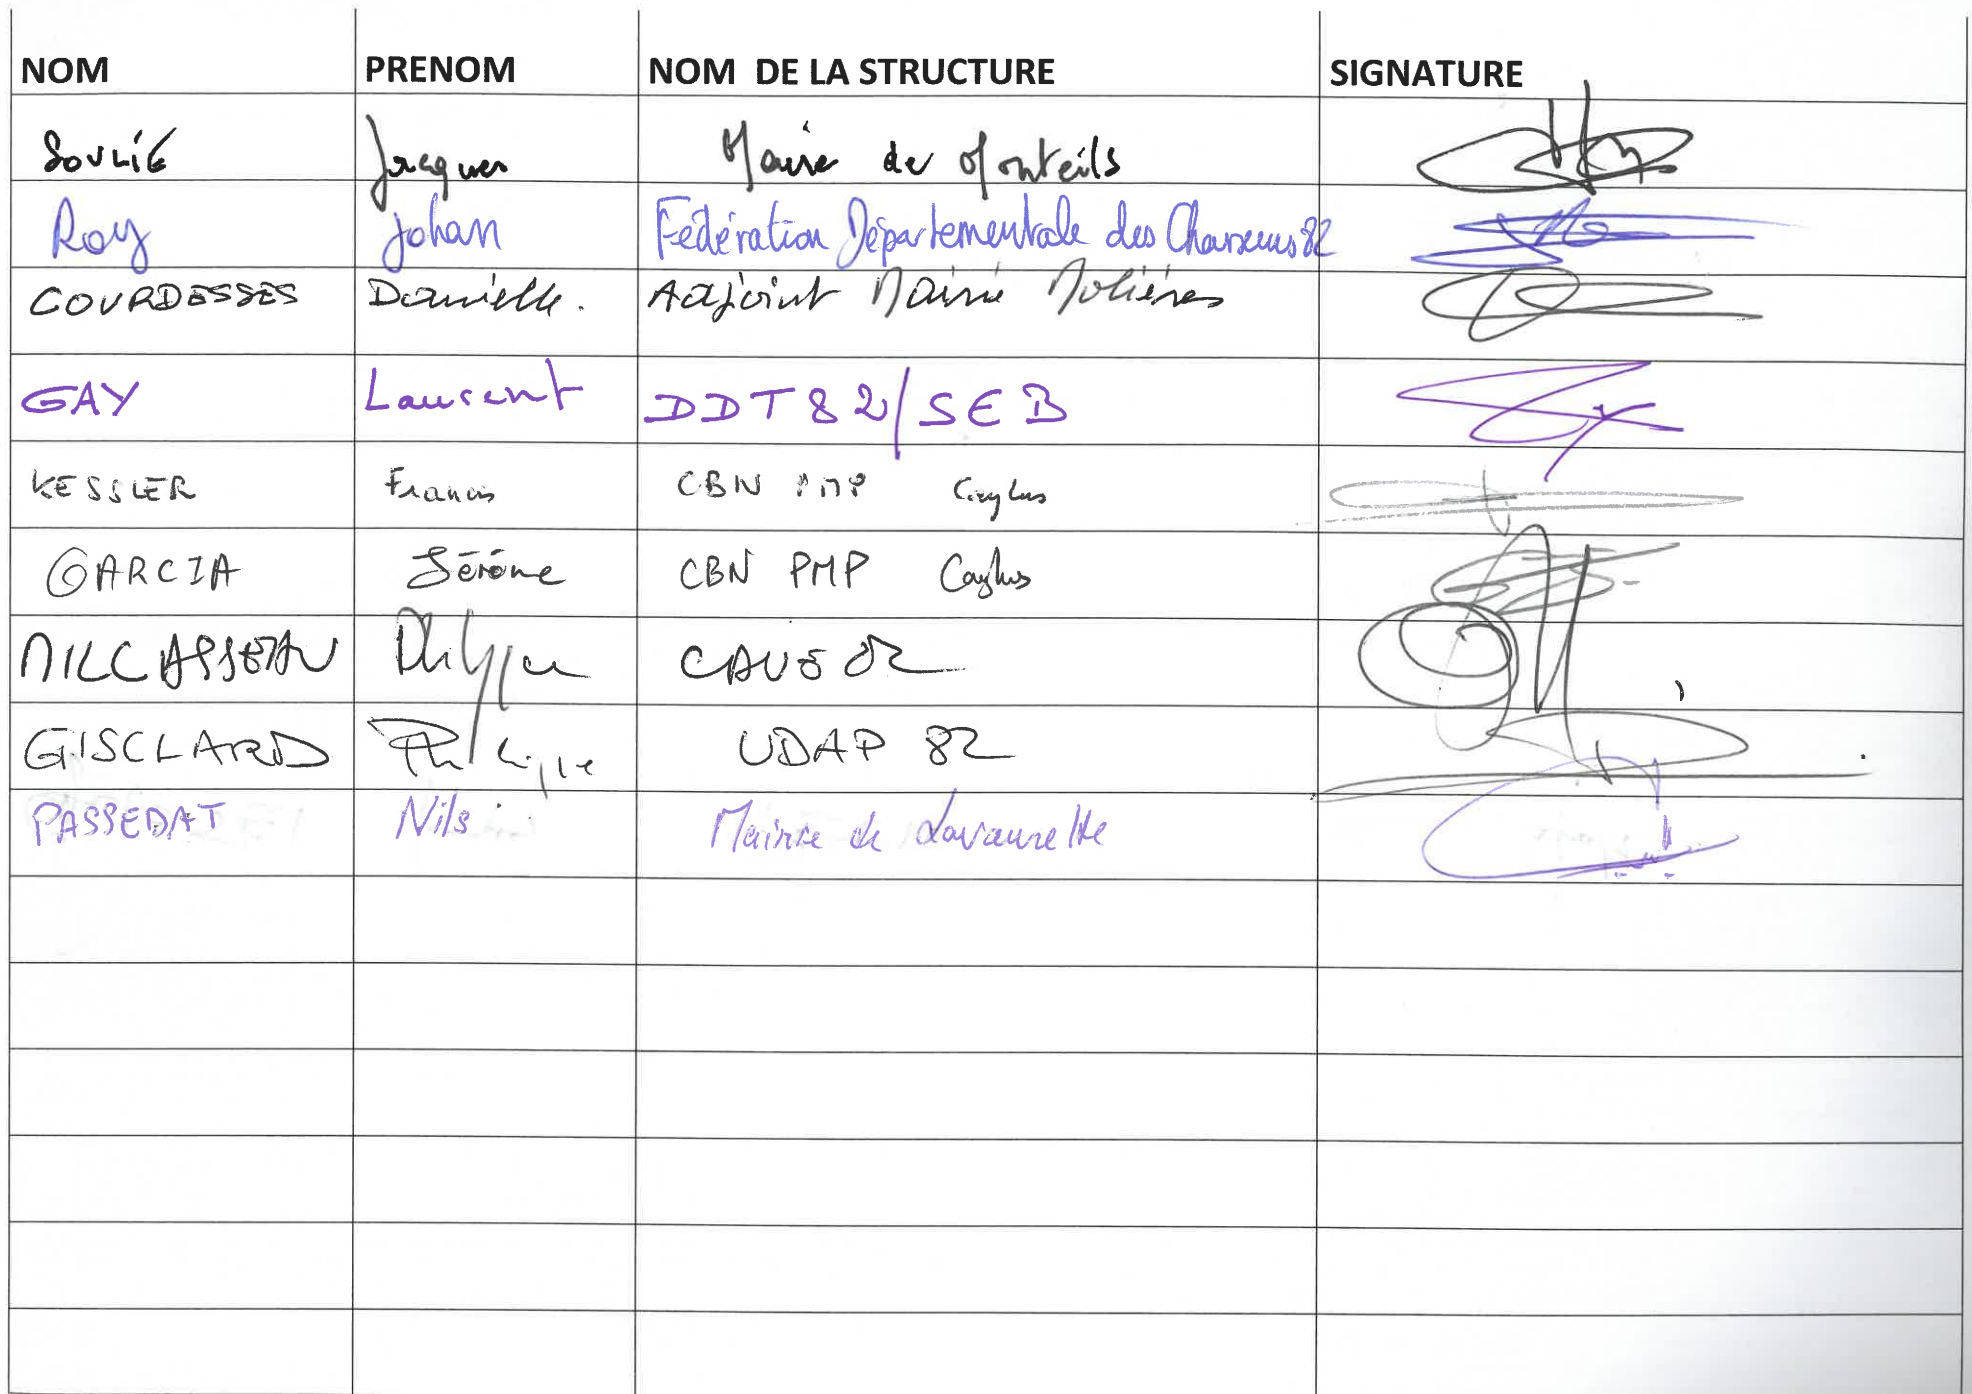 NOM PRENOM NOM DE LA STRUCTURE SIGNATURE
Soulié Jacques Maire de Monteils
Roy Johan Fédération Départementale des Chasseurs 82
COURDESSES Danielle. Adjoint Mairie Molières
GAY Laurent DDT82/SEB
KESSLER Francis CBN PMP Caylus
GARCIA Jérôme CBN PMP Caylus
Philippe
GISCLARD Philippe UDAP 82
PASSEDAT Nils Mairie de Lavaurette